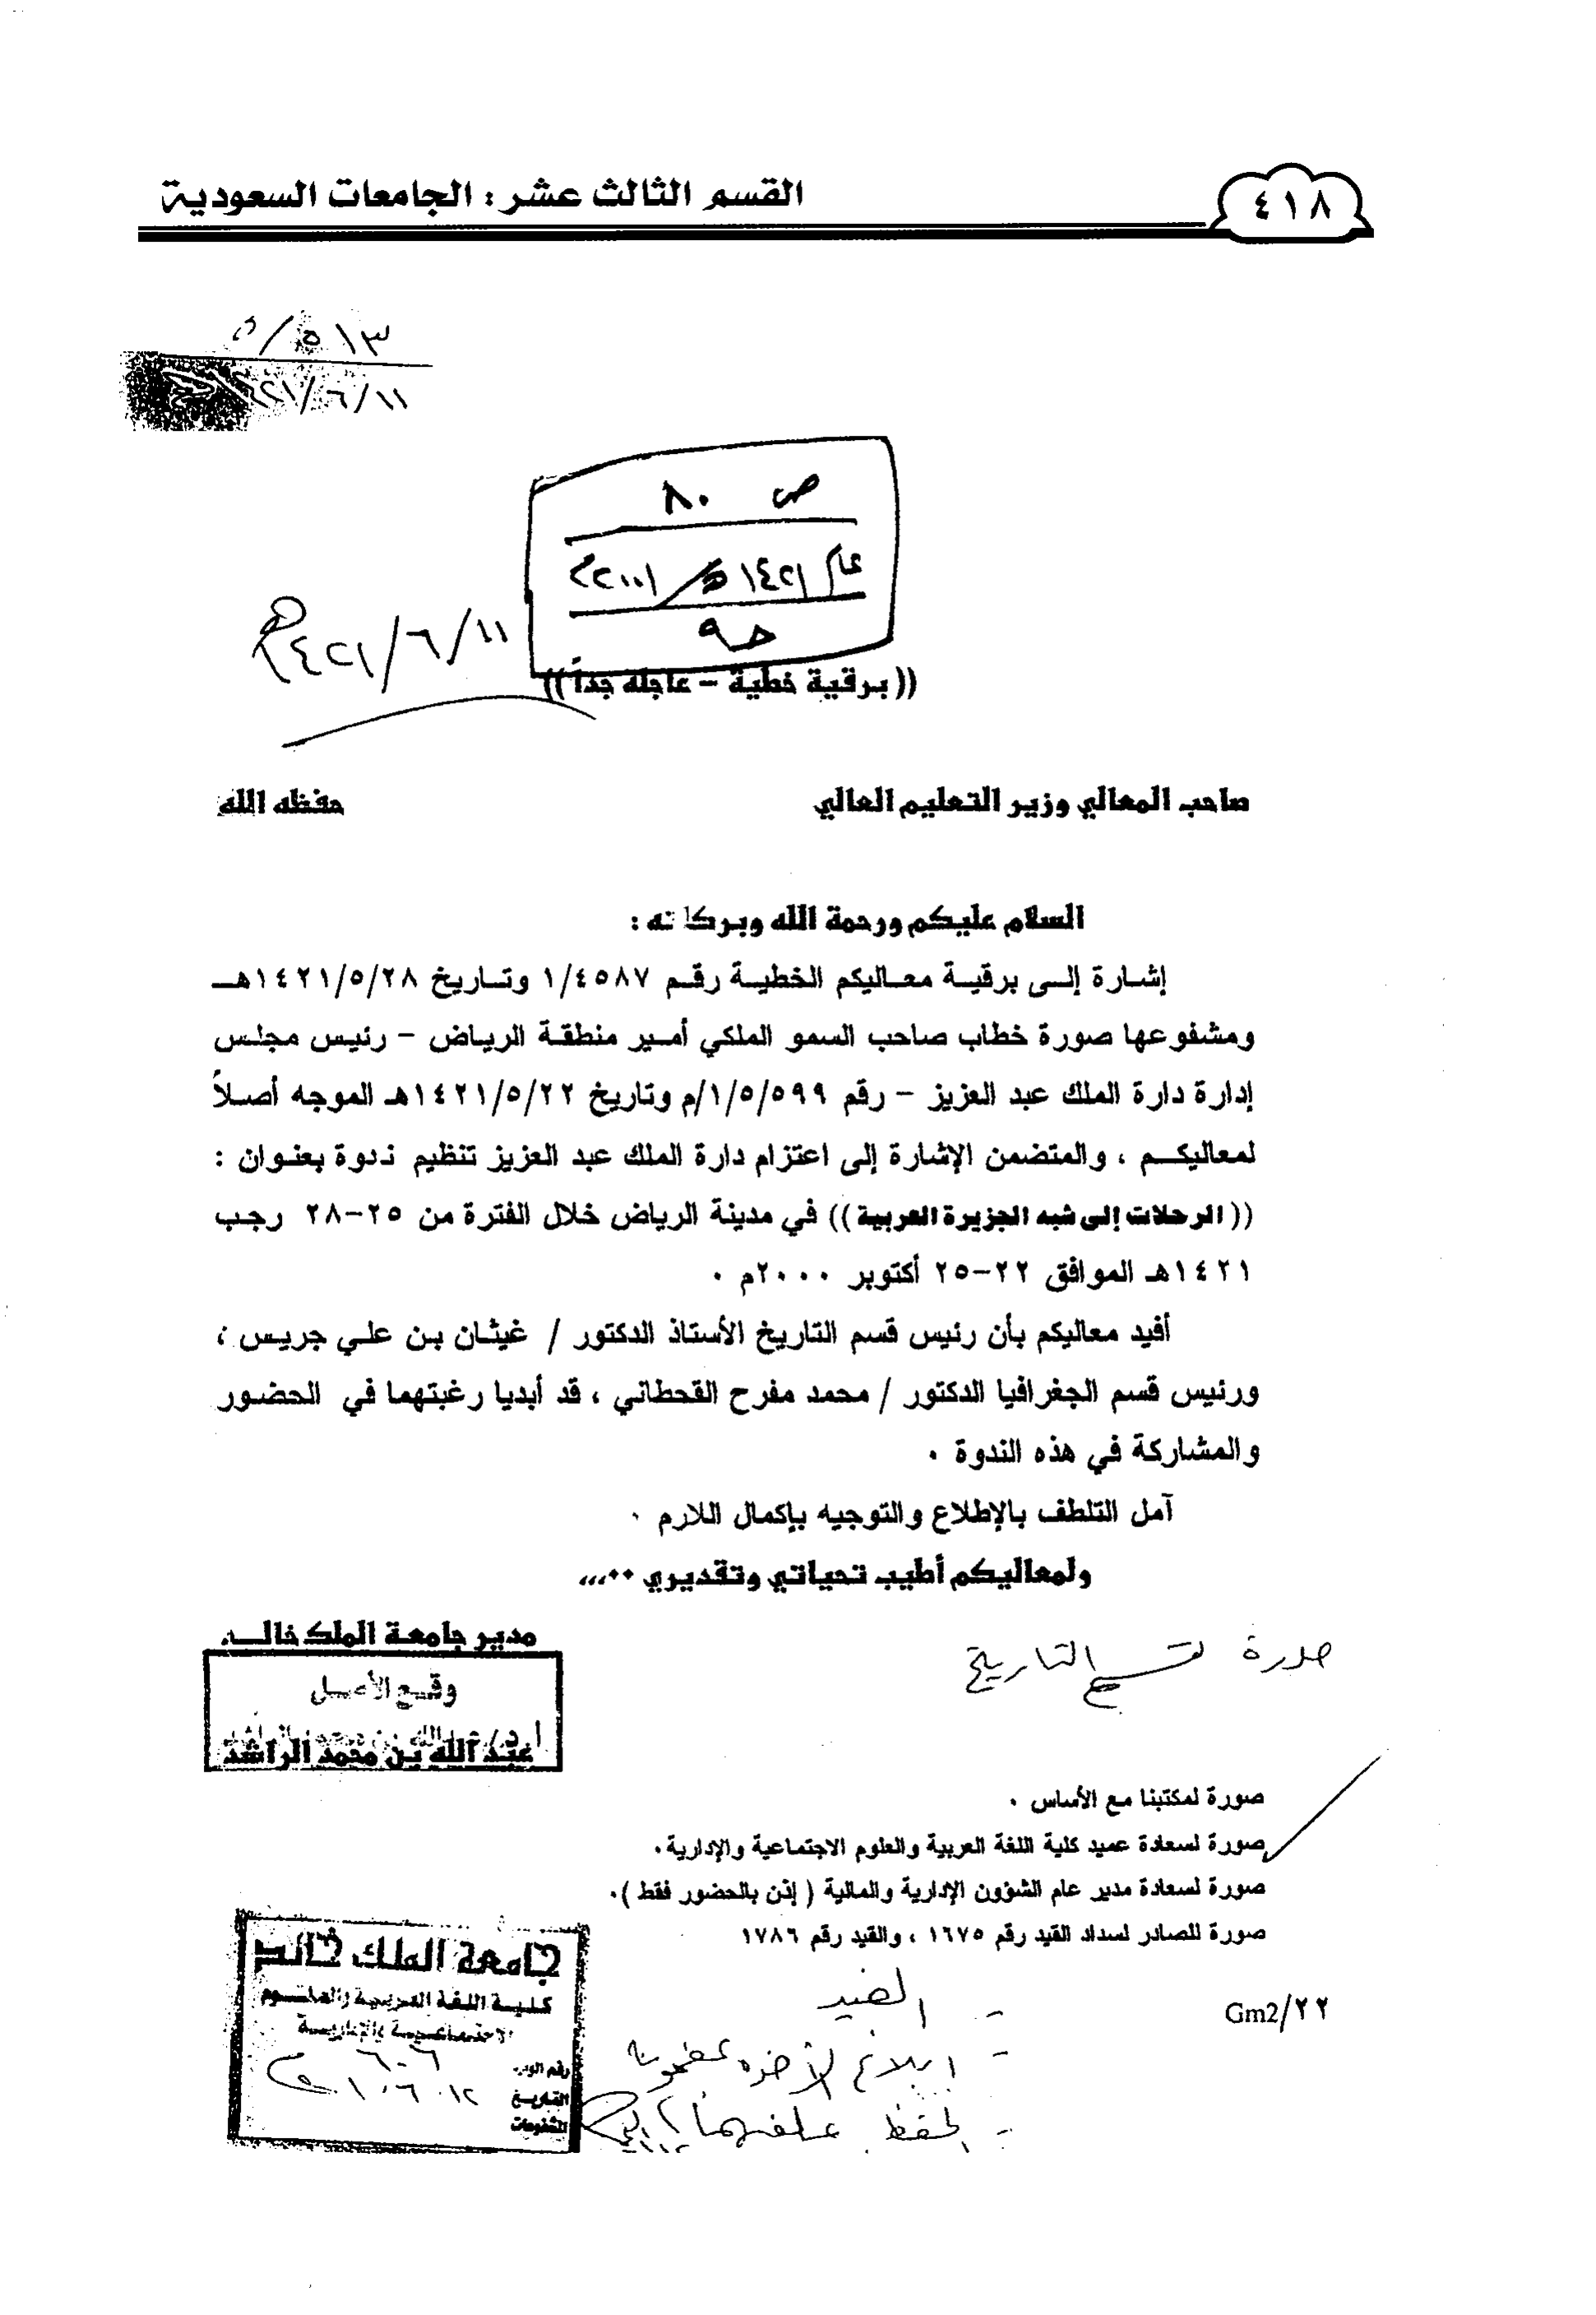 القسم الثالث عشر : الجامعات السعودية
٤١٨
٥/٥١٣
١٤٢١/٦/١١
ص ٨٠
عام ١٤٢١هـ/٢٠٠١م
حـ٩
١٤٢١/٦/١١هـ
((برقية خطية – عاجلة جداً))
صاحب المعالي وزير التعليم العالي حفظه الله
السلام عليكم ورحمة الله وبركاته :
إشارة إلى برقية معاليكم الخطية رقم ١/٤٥٨٧ وتاريخ ١٤٢١/٥/٢٨هـ
ومشفوعها صورة خطاب صاحب السمو الملكي أمير منطقة الرياض – رئيس مجلس
إدارة دارة الملك عبد العزيز – رقم ١/٥/٥٩٩/م وتاريخ ١٤٢١/٥/٢٢هـ الموجه أصلاً
لمعاليكم ، والمتضمن الإشارة إلى اعتزام دارة الملك عبد العزيز تنظيم ندوة بعنوان :
((الرحلات إلى شبه الجزيرة العربية)) في مدينة الرياض خلال الفترة من ٢٥–٢٨ رجب
١٤٢١هـ الموافق ٢٢–٢٥ أكتوبر ٢٠٠٠م ٠
أفيد معاليكم بأن رئيس قسم التاريخ الأستاذ الدكتور / غيثان بن علي جريس ،
ورئيس قسم الجغرافيا الدكتور / محمد مفرح القحطاني ، قد أبديا رغبتهما في الحضور
والمشاركة في هذه الندوة ٠
آمل التلطف بالإطلاع والتوجيه بإكمال اللازم ٠
ولمعاليكم أطيب تحياتي وتقديري ٠٠،،،
مدير جامعة الملك خالد
وقع الأصل
عبد الله بن محمد الراشد
صورة لقسم التاريخ
صورة لمكتبنا مع الأساس ٠
صورة لسعادة عميد كلية اللغة العربية والعلوم الاجتماعية والإدارية٠
صورة لسعادة مدير عام الشؤون الإدارية والمالية ( إذن بالحضور فقط )٠
صورة للصادر لسداد القيد رقم ١٦٧٥ ، والقيد رقم ١٧٨٦
Gm2/٢٢
- القيد
- ابلاغ الأخوه بمضمونه
- لحفظ بملفهما
جامعة الملك خالد
كلية اللغة العربية والعلوم
الاجتماعية والإدارية
رقم الوارد ٦٠٦
التاريخ
المشفوعات